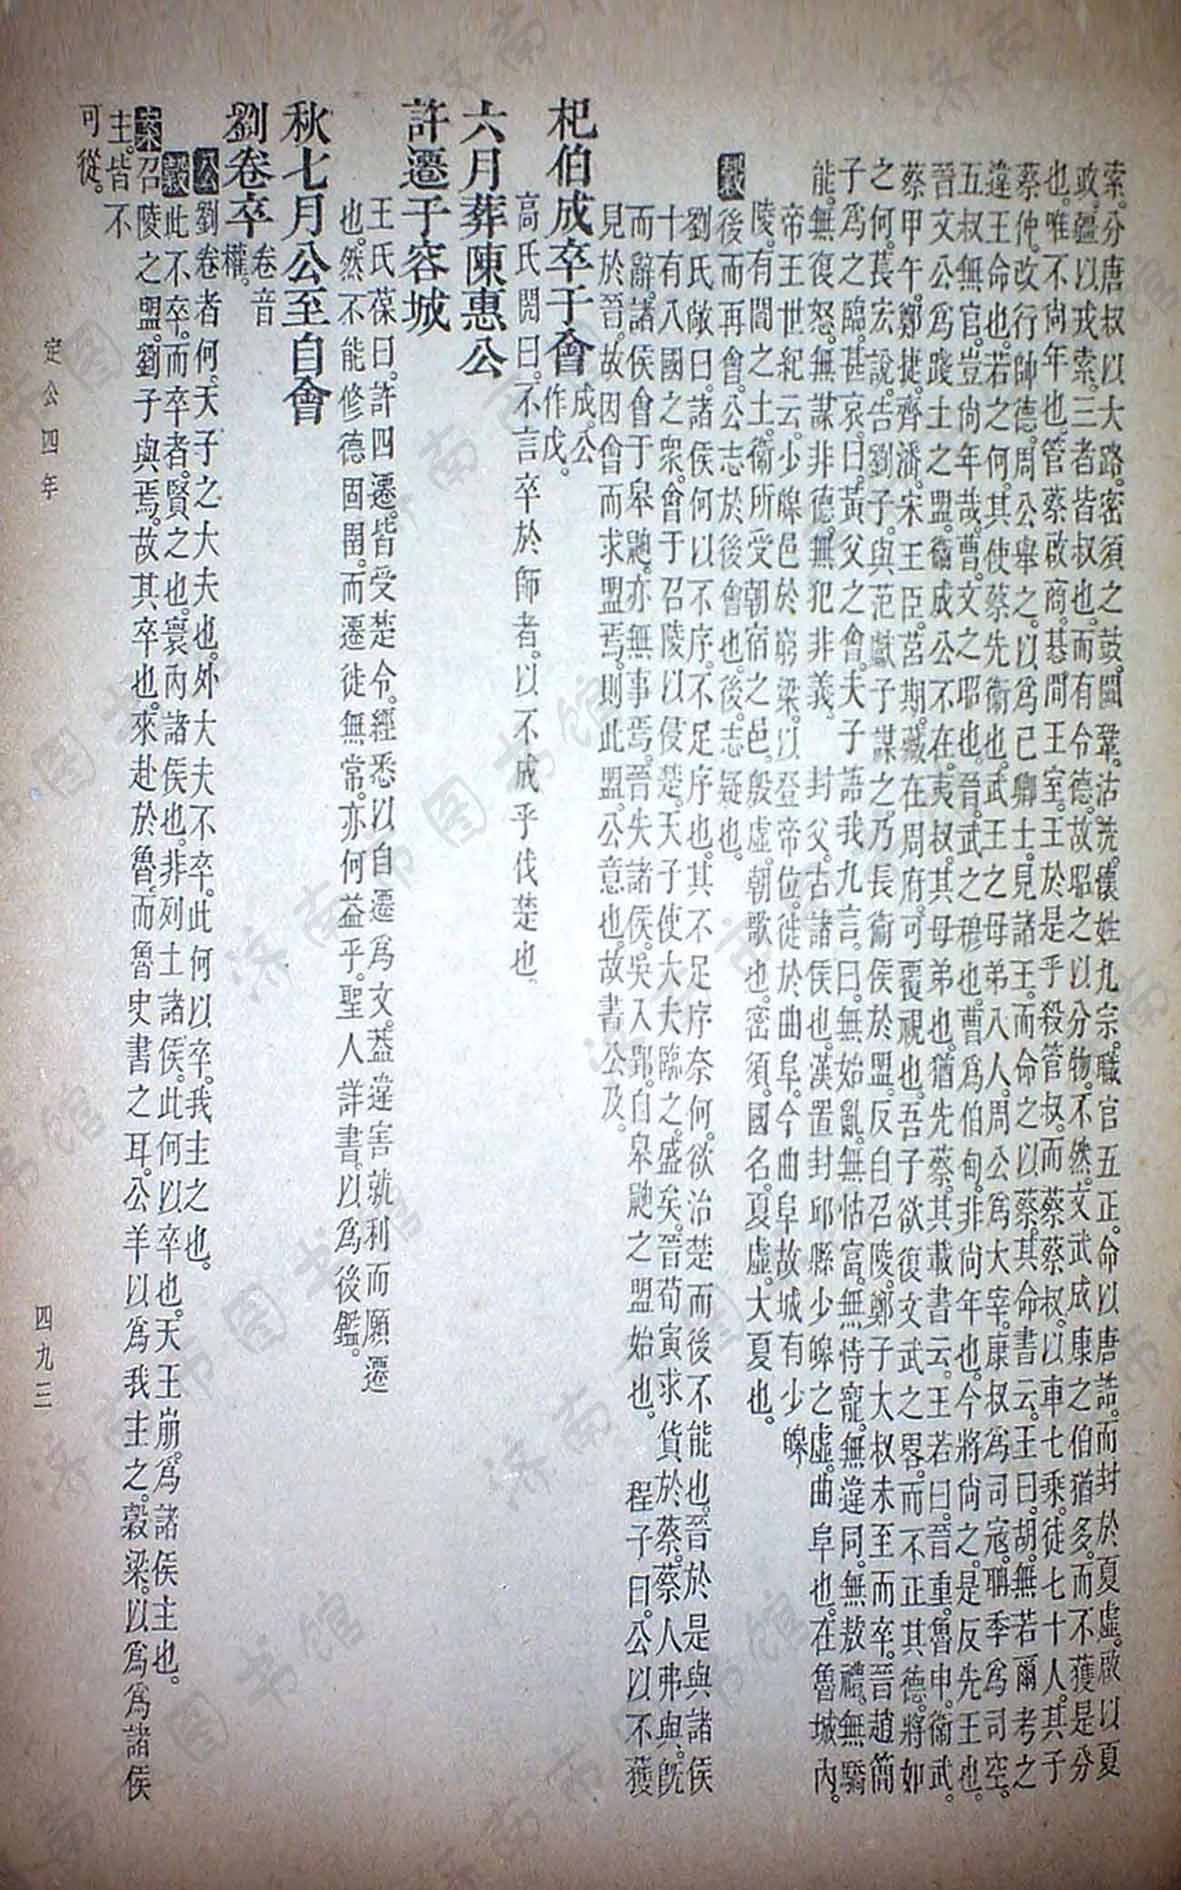 索分唐叔以大路密須之鼓闕鞏沽洗懷姓九宗職官五正命以唐誥而封於夏虛啟以夏
政疆以戎索三者皆叔也而有令德故昭之以分物不然文武成康之伯猶多而不獲是分
也唯不尚年也管蔡啟商惎間王室王於是乎殺管叔而蔡蔡叔以車七乘徒七十人其子
蔡仲改行帥德周公舉之以為己卿士見諸王而命之以蔡其命書云王曰胡無若爾考之
違王命也若之何其使蔡先衛也武王之母弟八人周公為大宰康叔為司寇聃季為司空
五叔無官豈尚年哉曹文之昭也晉武之穆也曹為伯甸非尚年也今將尚之是反先王也
晉文公為踐土之盟衛成公不在夷叔其母弟也猶先蔡其載書云王若曰晉重魯申衛武
蔡甲午鄭捷齊潘宋王臣莒期藏在周府可覆視也吾子欲復文武之畧而不正其德將如
之何萇宏說告劉子與范獻子謀之乃長衛侯於盟反自召陵鄭子大叔未至而卒晉趙簡
子為之臨甚哀曰黃父之會夫子語我九言曰無始亂無怙富無恃寵無違同無敖禮無驕
能無復怒無謀非德無犯非義 封父古諸侯也漢置封邱縣少皞之虛曲阜也在魯城內
帝王世紀云少皞邑於窮桑以登帝位徙於曲阜今曲阜故城有少皞
陵有閻之土衛所受朝宿之邑殷虛朝歌也密須國名夏虛大夏也
後而再會公志於後會也後志疑也
劉氏敞曰諸侯何以不序不足序也其不足序奈何欲治楚而後不能也晉於是與諸侯
十有八國之眾會于召陵以侵楚天子使大夫臨之盛矣晉荀寅求貨於蔡蔡人弗與既
而辭諸侯會于皐鼬亦無事焉晉失諸侯吳入郢自皐鼬之盟始也 程子曰公以不獲
見於晉故因會而求盟焉則此盟公意也故書公及
杞伯成卒于會 成公作戊
高氏閌曰不言卒於師者以不成乎伐楚也
六月葬陳惠公
許遷于容城
王氏葆曰許四遷皆受楚令經悉以自遷為文蓋違害就利而願遷
也然不能修德固圉而遷徙無常亦何益乎聖人詳書以為後鑑
秋七月公至自會
劉卷卒 卷音權
公劉卷者何天子之大夫也外大夫不卒此何以卒我主之也
穀此不卒而卒者賢之也寰內諸侯也非列土諸侯此何以卒也天王崩為諸侯主也
案召陵之盟劉子與焉故其卒也來赴於魯而魯史書之耳公羊以為我主之穀梁以為為諸侯
主皆不
可從
定公四年
四九三